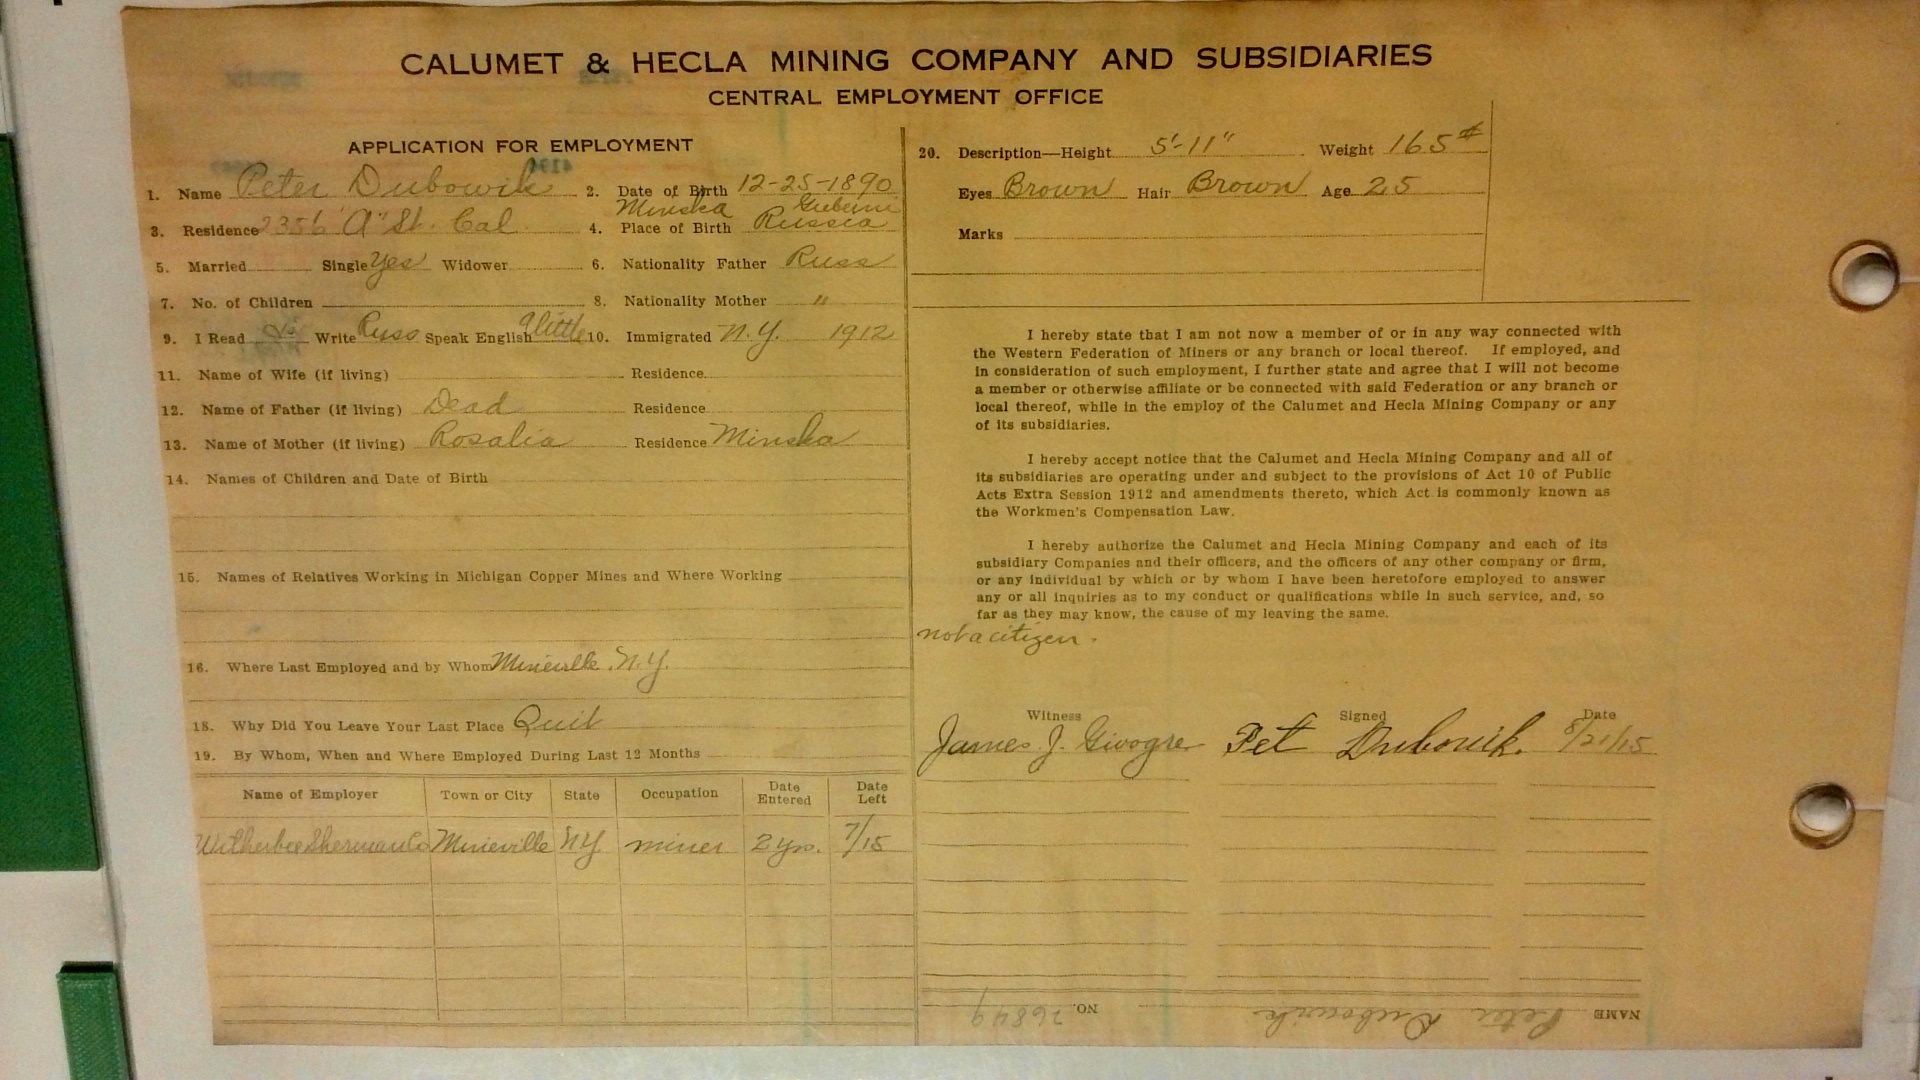 CALUMET & HECLA MINING COMPANY AND SUBSIDIARIES
CENTRAL EMPLOYMENT OFFICE
APPLICATION FOR EMPLOYMENT
1. Name Peter Dubowik 2. Date of Birth 12-25-1890
Minska Guberni
3. Residence 2356 "A" St. Cal 4. Place of Birth Russia
5. Married Single Yes Widower 6. Nationality Father Russ
7. No. of Children 8. Nationality Mother "
9. I Read Write Russ Speak English A little 10. Immigrated N.Y. 1912
11. Name of Wife (if living) Residence
12. Name of Father (if living) Dead Residence
13. Name of Mother (if living) Rosalia Residence Minska
14. Names of Children and Date of Birth
15. Names of Relatives Working in Michigan Copper Mines and Where Working
16. Where Last Employed and by Whom Mineville, N.Y.
18. Why Did You Leave Your Last Place Quit
19. By Whom, When and Where Employed During Last 12 Months
Name of Employer Town or City State Occupation Date Entered Date Left
Witherbee Sherman Co Mineville NY miner 2 yrs. 7/15
20. Description—Height 5'-11" Weight 165#
Eyes Brown Hair Brown Age 25
Marks
I hereby state that I am not now a member of or in any way connected with
the Western Federation of Miners or any branch or local thereof. If employed, and
in consideration of such employment, I further state and agree that I will not become
a member or otherwise affiliate or be connected with said Federation or any branch or
local thereof, while in the employ of the Calumet and Hecla Mining Company or any
of its subsidiaries.
I hereby accept notice that the Calumet and Hecla Mining Company and all of
its subsidiaries are operating under and subject to the provisions of Act 10 of Public
Acts Extra Session 1912 and amendments thereto, which Act is commonly known as
the Workmen's Compensation Law.
I hereby authorize the Calumet and Hecla Mining Company and each of its
subsidiary Companies and their officers, and the officers of any other company or firm,
or any individual by which or by whom I have been heretofore employed to answer
any or all inquiries as to my conduct or qualifications while in such service, and, so
far as they may know, the cause of my leaving the same.
not a citizen.
Witness Signed Date
James J. Pet Dubowik. 8/21/15
NAME Peter Dubowik NO. 26849